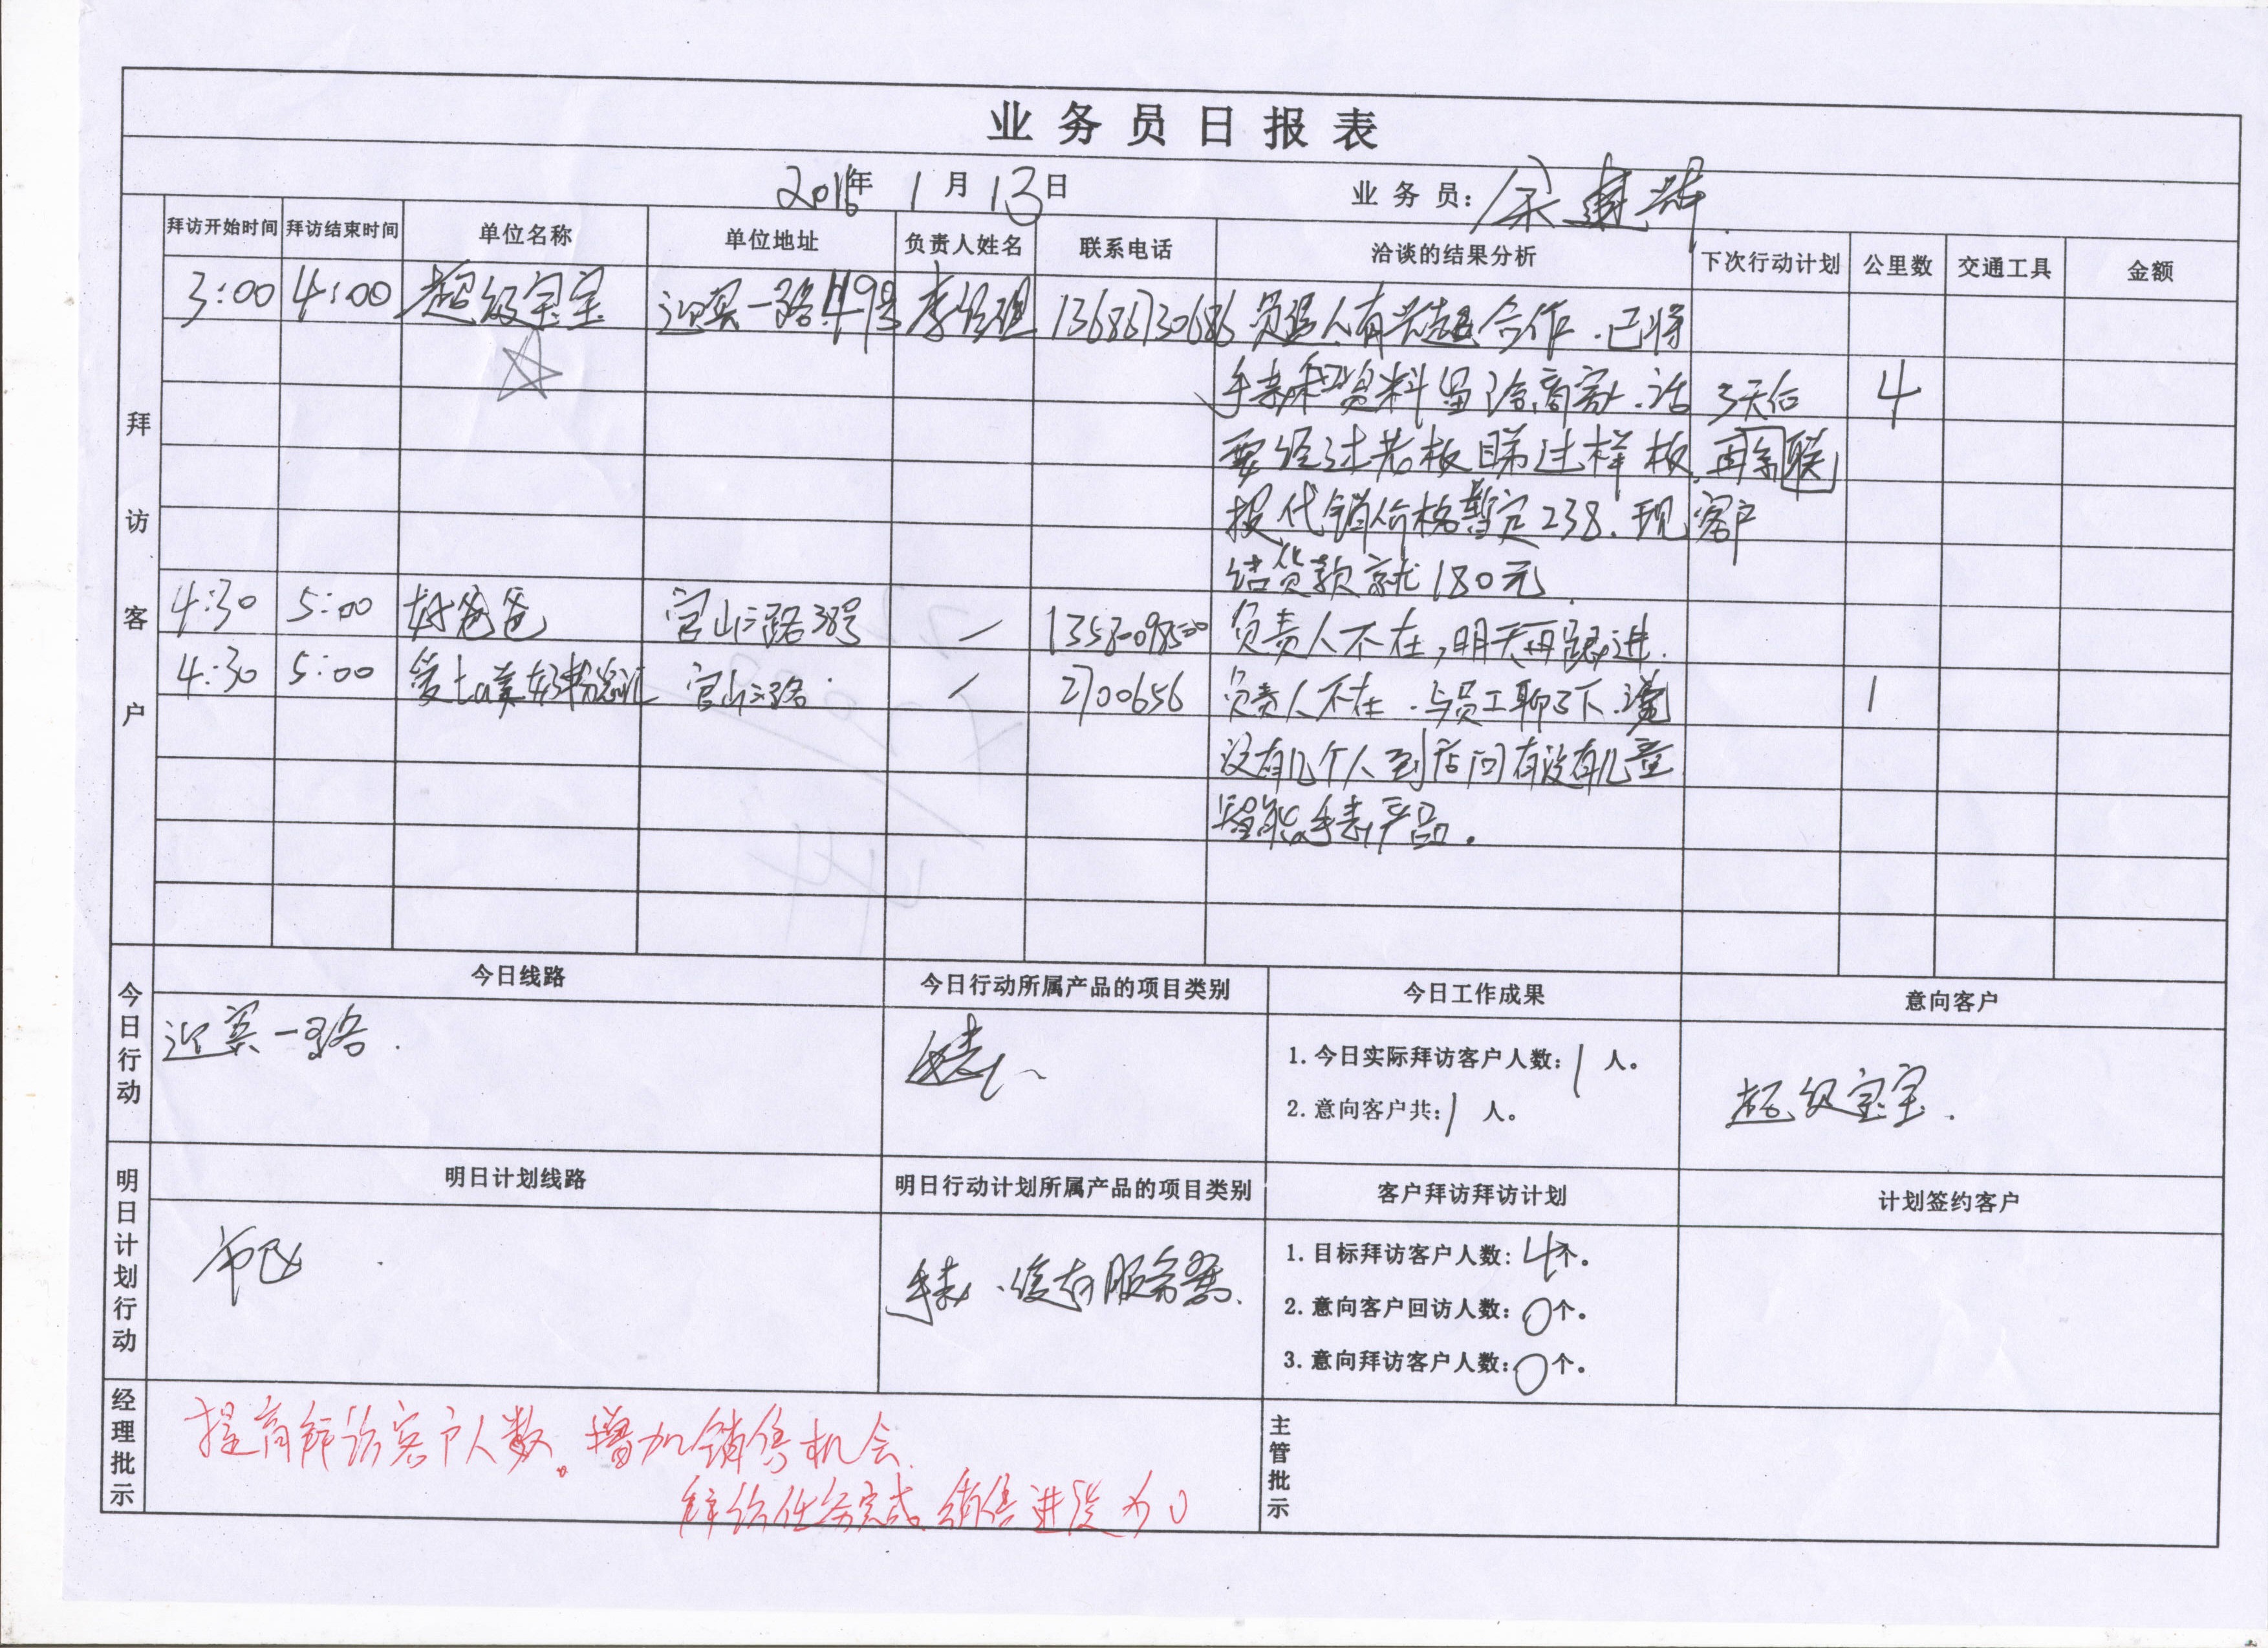 业务员日报表
2016年 1月13日 业务员:
拜访开始时间 拜访结束时间 单位名称 单位地址 负责人姓名 联系电话 洽谈的结果分析 下次行动计划 公里数 交通工具 金额
拜访客户
3:00 4:00 超级宝宝 迎宾一路49号 李经理 13686730686 负责人有兴趣合作.已将
手表和资料留给商家.话 3天后 4
要经过老板睇过样板, 再联系
报代销价格暂定238.现 客户
结货款就180元.
4:30 5:00 好爸爸 宫山三路38号 — 负责人不在,明天再跟进.
4:30 5:00 宫山三路. — 2700656 负责人不在.与员工聊了下.说 1
没有几个人到店问有没有儿童
智能手表产品.
今日行动
今日线路 今日行动所属产品的项目类别 今日工作成果 意向客户
迎宾一路. 手表
1.今日实际拜访客户人数:1人。
2.意向客户共:1人。
超级宝宝.
明日计划行动
明日计划线路 明日行动计划所属产品的项目类别 客户拜访拜访计划 计划签约客户
手表、服务器.
1.目标拜访客户人数:4个。
2.意向客户回访人数:0个。
3.意向拜访客户人数:0个。
经理批示
提高拜访客户人数。增加销售机会.
拜访任务完成.销售进度为0
主管批示